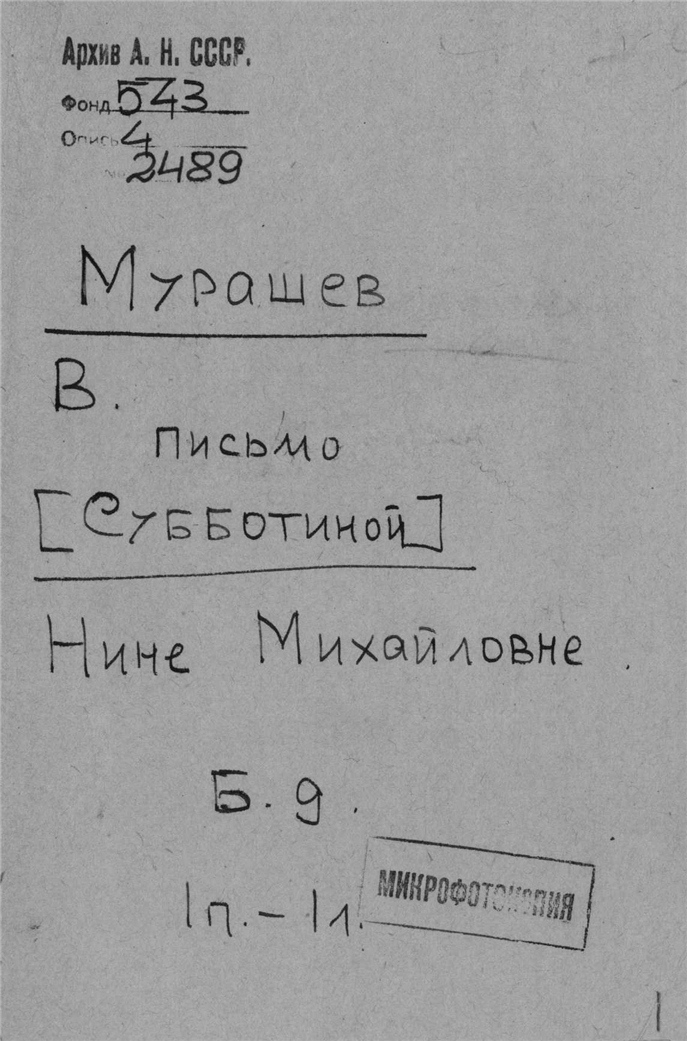 Архив А. Н. СССР.
Фонд 543
Опись 4
№ 2489
Мурашев
В.
письмо
[Субботиной]
Нине Михайловне.
Б. д.
1п. – 1л.
МИКРОФОТОКОПИЯ
1